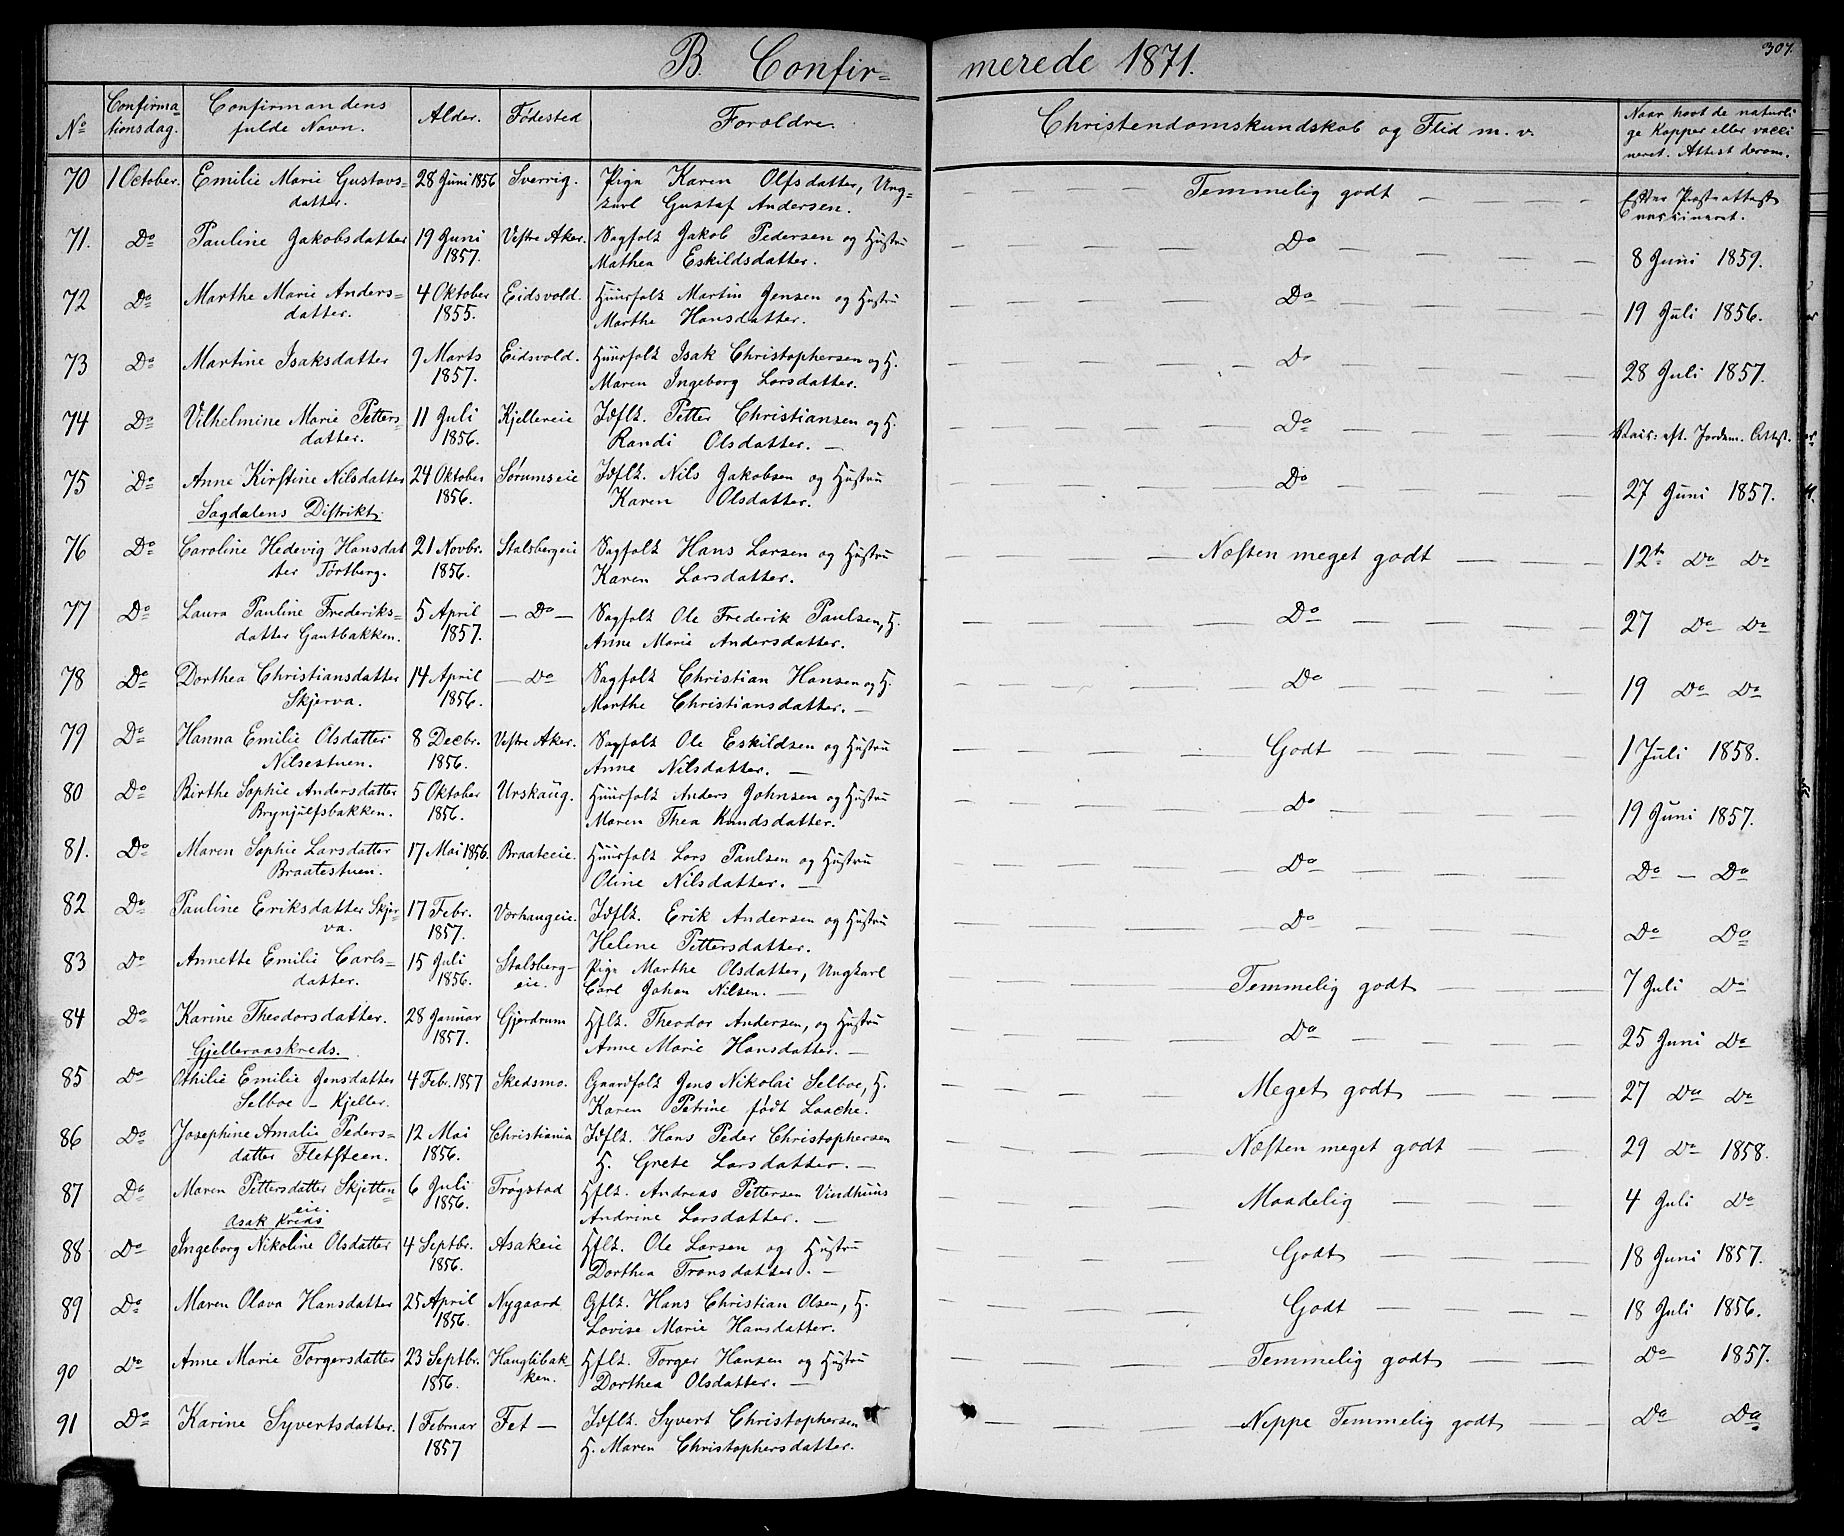 307.
B. Confirmerede 1871.
No Confirmationsdag. Confirmandens fulde Navn. Alder. Fødested Forældre. Christendomskundskab og Flid m. v. Naar havt de naturlige Kopper eller vaccineret. Attest derom.
70 1 October. Emilie Marie Gustavs= 28 Juni 1856 Sverrig. Pige Karen Olfsdatter, Ung- — — — Temmelig godt — — — Efter Presteattest
datter. karl Gustaf Andersen. vaccineret.
71. Do Pauline Jakobsdatter 19 Juni Vestre Aker. Sagfolk Jakob Pedersen og Hustru Do 8 Juni 1859.
1857. Mathea Eskildsdatter.
72 Do Marthe Marie Anders= 4 Oktober Eidsvold. Huusfolk Martin Jensen og Hustru Do 19 Juli 1856.
datter. 1855. Marthe Hansdatter.
73 Do Martine Isaksdatter 9 Marts Eidsvold. Huusfolk Isak Christophersen og H. Do 28 Juli 1857.
1857. Maren Ingeborg Larsdatter.
74 Do Vilhelmine Marie Petters= 11 Juli Kjellereie Idflk. Petter Christiansen og H. Do Vacc: eft. Jordem. Attest.
datter. 1856. Randi Olsdatter. —
75 Do Anne Kirstine Nilsdatter 24 Oktober Sørumseie Idflk. Nils Jakobsen og Hustru Do 27 Juni 1857.
1856. Karen Olsdatter.
Sagdalens Distrikt.
76 Do Caroline Hedevig Hansdat 21 Novbr. Stalsbergeie Sagfolk Hans Larsen og Hustru Næsten meget godt 12te Do Do
ter Tørtberg. 1856. Karen Larsdatter.
77 Do Laura Pauline Frederiks= 5 April — Do — Sagfolk Ole Frederik Paulsen, H. Do 27 Do Do
datter Gautbakken. 1857. Anne Marie Andersdatter.
78 Do Dorthea Christiansdatter 14 April — Do Sagfolk Christian Hansen og H. Do 19 Do Do
Skjerva. 1856. Marthe Christiansdatter. —
79 Do Hanna Emilie Olsdatter 8 Decbr. Vestre Aker. Sagfolk Ole Eskildsen og Hustru Godt 1 Juli 1858.
Nilsestuen. 1856. Anne Nilsdatter. —
80 Do Birthe Sophie Andersdatter 5 Oktober Urskaug. Huusfolk Anders Johnsen og Hustru Do 19 Juni 1857.
Brynjulfsbakken. 1856. Maren Thea Knudsdatter.
81. Do Maren Sophie Larsdatter 17 Mai 1856. Braateeie. Huusfolk Lars Paulsen og Hustru Do Do — Do
Braatestuen. Oline Nilsdatter. —
82 Do Pauline Eriksdatter Skjer- 17 Febr. Vorhaugeie. Idflk. Erik Andersen og Hustru Do Do Do
va. 1857. Helene Pettersdatter.
83 Do Annette Emilie Carls= 15 Juli Stalsberg- Pige Marthe Olsdatter, Ungkarl Temmelig godt 7 Juli Do
datter. 1856. eie. Carl Johan Nilsen. —
84 Do Karine Theodorsdatter. 28 Januar Gjerdrum Hflk. Theodor Andersen, og Hustru Do 25 Juni Do
1857. Anne Marie Hansdatter. —
Gjelleraaskreds.
85 Do Othilie Emilie Jensdatter 4 Febr. 1857 Skedsmo. Gaardfolk Jens Nikolai Selboe, H. Meget godt 27 Do Do
Selboe — Kjeller. Karen Petrine født Laache.
86 Do Josephine Amalie Peders= 12 Mai Christiania Idflk. Hans Peder Christophersen Næsten meget godt 29 Do 1858.
datter Fletsteen. 1856. H. Grete Larsdatter. —
87 Do Maren Pettersdatter Skjetten- 6 Juli Trøgstad Hflk. Andreas Pettersen Vindhuus Maadelig 4 Juli Do
eie. 1856. Andrine Larsdatter. —
Asak Kreds
88 Do Ingeborg Nikoline Olsdatter 4 Septbr. Asakeie Hflk. Ole Larsen og Hustru Godt 18 Juni 1857.
1856. Dorthea Tronsdatter. —
89 Do Maren Olava Hansdatter 25 April Nygaard Gflk. Hans Christian Olsen, H. Godt 18 Juli 1856.
1856. Lovise Marie Hansdatter.
90 Do Anne Marie Torgersdatter 23 Septbr. Hauglibak Hflk. Torger Hansen og Hustru Temmelig godt Do 1857.
1856. ken. Dorthea Olsdatter. —
91 Do Karine Syvertsdatter. 1 Februar Fet — Idflk. Syvert Christophersen Neppe Temmelig godt Do Do
1857 H. Maren Christophersdatter.